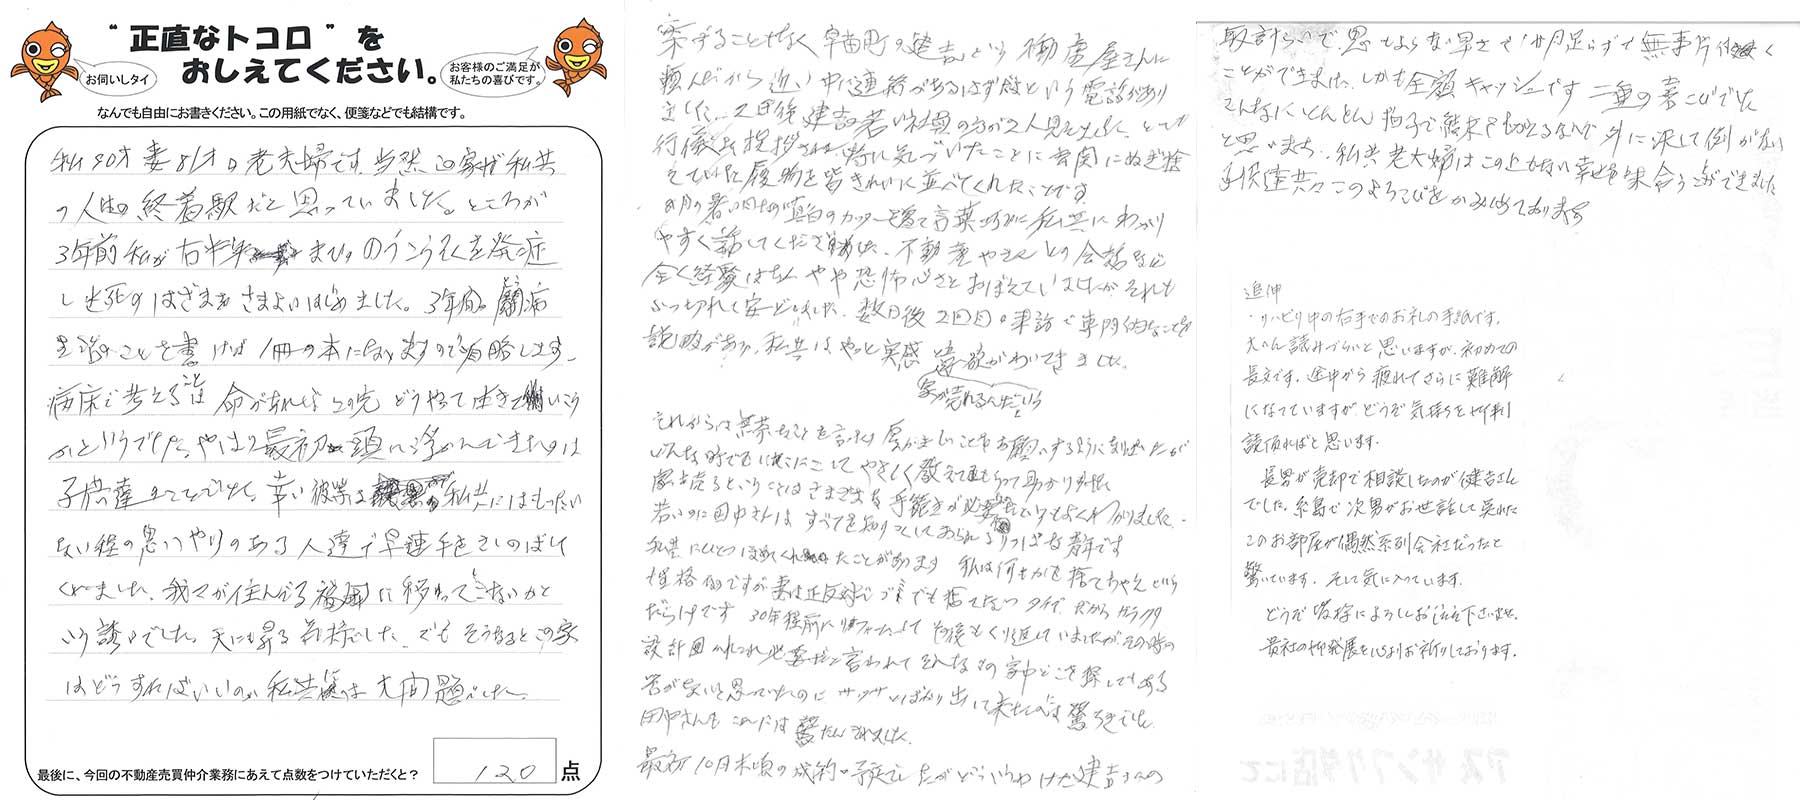 "正直なトコロ"を
おしえてください。
お伺いしタイ
お客様のご満足が
私たちの喜びです。
なんでも自由にお書きください。この用紙でなく、便箋などでも結構です。
私90才妻81才の老夫婦です。当然この家が私共
の人生の終着駅だと思っていました。ところが
3年前私が右半身まひののうこうそくを発症
し生死のはざまをさまよいはじめました。3年間の闘病
生活のことを書けば1冊の本になりますので省略します。
病床で考えることは命があればこの先どうやって生きていこう
かというでした。やはり最初頭に浮かんできたのは
子供達のことでした。幸い彼等は私共にはもったい
ない程の思いやりのある人達で早速手をさしのばして
くれました。我々が住んでる福岡に移ってこないかと
いう誘いでした。天にも昇る気持でした。でもそうなるとこの家
はどうすればいいのか私共には大問題でした。
最後に、今回の不動産売買仲介業務にあえて点数をつけていただくと?
120点
案ずることなく早苗町の健吉という不動産屋さんに
頼んだから近い中に連絡があるはずだという電話があり
ました。2日後健吉の若い社員の方が2人見えました。とても
行儀よく挨拶され特に気づいたことに玄関にぬぎ捨
えていた履物を皆きれいに並べてくれたことです。
8月の暑い日なのに真白のカッターを着て言葉巧みに私共にわかり
やすく話してくださいました。不動産やさんとの会話など
全く経験はなくやや恐怖心さえおぼえていましたがそれも
ふっきれて安どしました。数日後2回目の来訪で専門的なことの
説明があり、私共はやっと実感と意欲がわいてきました。
家が売れるんだという
それからは無茶なことを言ったり厚かましいこともお願いするようになりましたが
いかな時でもにこにこしてやさしく教えてもらって助かりました
家を売るということはさまざまな手続きが必要だということもよくわかりました。
若いのに田中さんはすべてを知りつくしておられるりっぱな青年です
私共にひとつほめてくれたことがあります 私は何もかも捨てちゃえという
性格ですが妻は正反対でゴミでも捨てないタイプ だからガラクタ
だらけです 30年程前にリフォームしてその後もくり返していましたがその時の
設計図がそれぞれ必要だと言われてそんなもの家中どこを探してもある
筈がないと思っていたのにサッサとばかり出して来たのには驚ろきでした。
田中さんもこれには驚たんされました。
最初10月末頃の成約の予定でしたがどういうわけか健吉さんの
取計らいで思いもよらない早さで1ヶ月足らずで無事片付く
ことができました。しかも全額キャッシュです 二重の喜こびでした
こんなにとんとん拍子で結末をむかえるなんて外に決して例がない
と思いました。私共老夫婦はこの上もない幸せを味合うことができました
子供達共々このよろこびをかみしめております
追伸
・リハビリ中の右手でのお礼の手紙です。
大へん読みづらいと思いますが、初めての
長文です。途中から疲れてさらに難解
になっていますがどうぞ気持ちを御判
読頂ければと思います。
長男が売却で相談したのが健吉さん
でした。糸島で次男がお世話して呉れた
このお部屋が偶然系列会社だったと
驚いています。そして気に入っています。
どうぞ皆様によろしくお伝え下さいませ。
貴社の御発展を心よりお祈りしております。